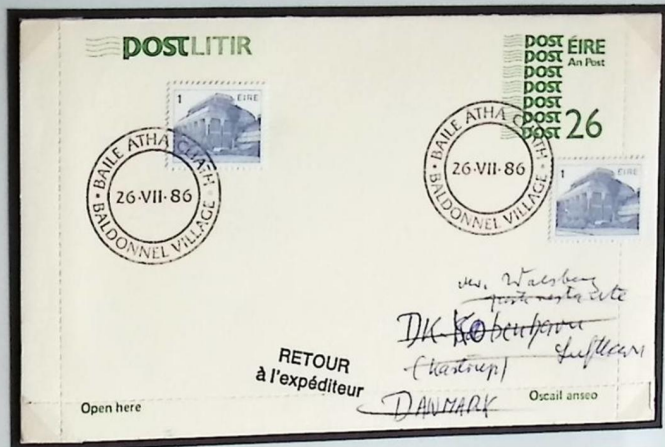 POSTLITIR
POST ÉIRE
POST An Post
POST
POST
POST
POST
POST 26
1 ÉIRE
1 ÉIRE
BAILE ATHA CLIATH
26·VII·86
BALDONNEL VILLAGE
BAILE ATHA CLIATH
26·VII·86
BALDONNEL VILLAGE
poste restante
DK København
Lufthavn
(Kastrup)
DANMARK
RETOUR
à l'expéditeur
Open here
Oscail anseo